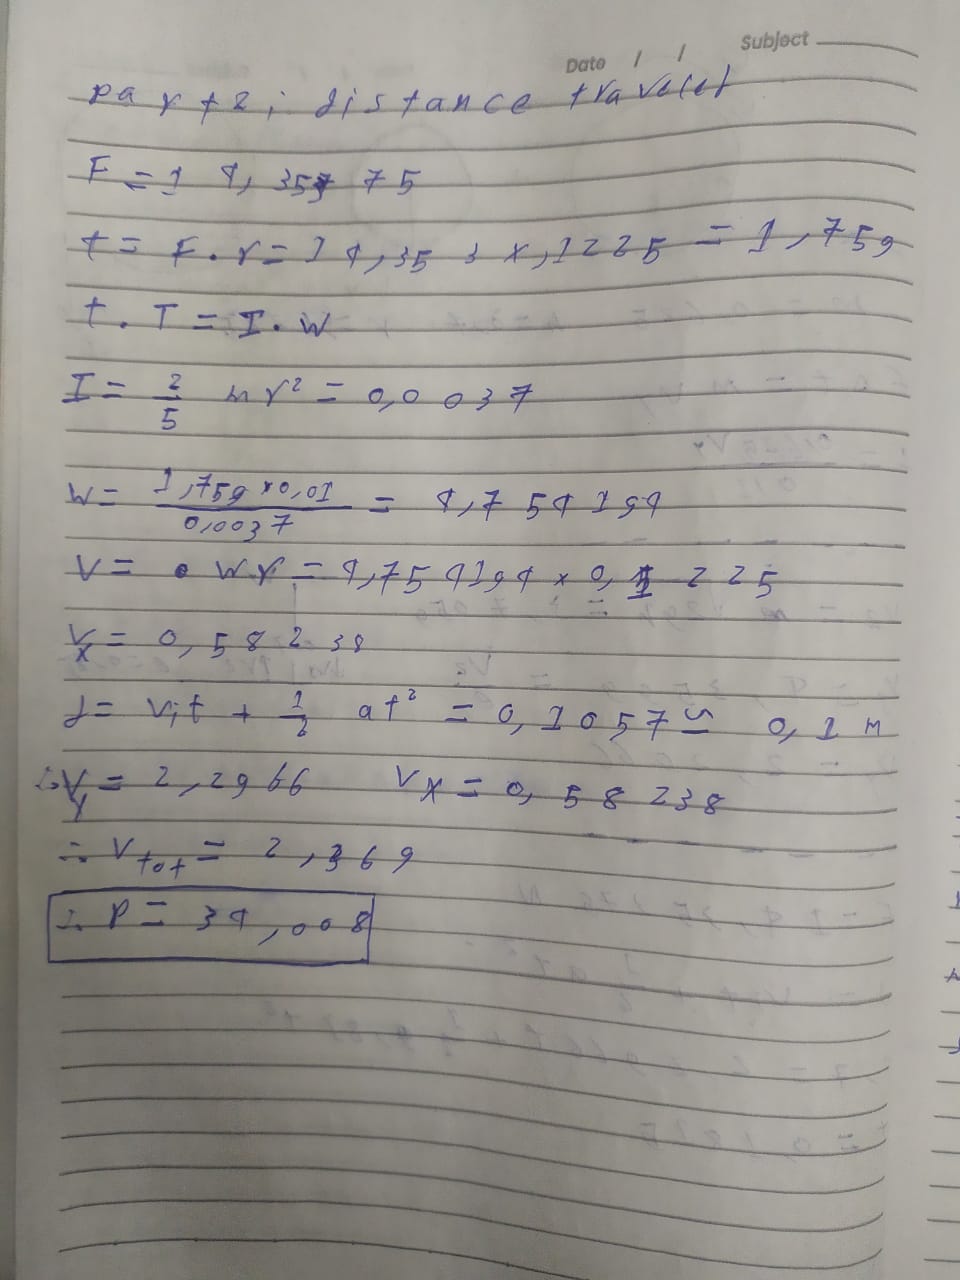 Subject
Date / /
part 2: distance traveled
F = 14,353 75
t = F . r = 14,35 3 x ,1225 = 1,759
t . T = I . W
I = 2/5 m r² = 0,0037
W = 1,759 x 0,01 / 0,0037 = 4,754194
V = W r = 4,754194 x 0,1225
Vx = 0,58238
d = Vit + 1/2 at² = 0,1057 ≃ 0,1 M
∴ Vy = 2,2966 Vx = 0,58238
∴ Vtot = 2,369
∴ P = 34,008